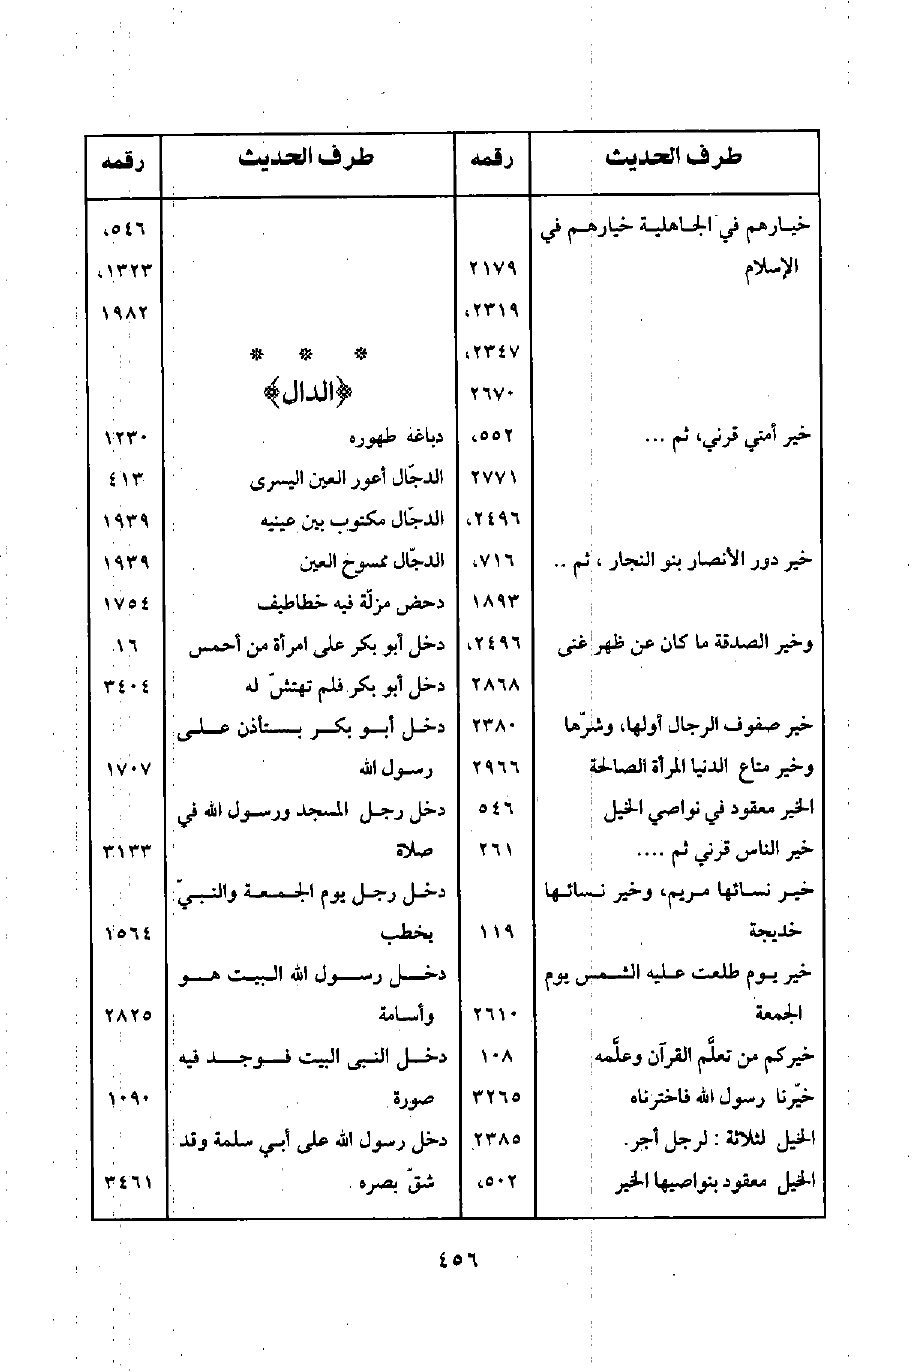 طرف الحديث رقمه طرف الحديث رقمه
خيارهم في الجاهلية خيارهم في
الإسلام ٢١٧٩
٢٣١٩،
٢٣٤٧،
٢٦٧٠
خير أمتي قرني، ثم ... ٥٥٢،
٢٧٧١
٢٤٩٦،
خير دور الأنصار بنو النجار ، ثم .. ٧١٦،
١٨٩٣
وخير الصدقة ما كان عن ظهر غنى ٢٤٩٦،
٢٨٦٨
خير صفوف الرجال أولها، وشرّها ٢٣٨٠
وخير متاع الدنيا المرأة الصالحة ٢٩٦٦
الخير معقود في نواصي الخيل ٥٤٦
خير الناس قرني ثم .... ٢٦١
خير نسائها مريم، وخير نسائها
خديجة ١١٩
خير يوم طلعت عليه الشمس يوم
الجمعة ٢٦١٠
خيركم من تعلَّم القرآن وعلَّمه ١٠٨
خيّرنا رسول الله فاخترناه ٣٢٦٥
الخيل لثلاثة : لرجل أجر. ٢٣٨٥
الخيل معقود بنواصيها الخير ٥٠٢،
٥٤٦،
١٣٢٣،
١٩٨٢
* * *
﴿الدال﴾
دباغه طهوره ١٢٣٠
الدجّال أعور العين اليسرى ٤١٣
الدجّال مكتوب بين عينيه ١٩٣٩
الدجّال ممسوخ العين ١٩٣٩
دحض مزلّة فيه خطاطيف ١٧٥٤
دخل أبو بكر على امرأة من أحمس ١٦
دخل أبو بكر فلم تهتشّ له ٣٤٠٤
دخل أبو بكر يستأذن على
رسول الله ١٧٠٧
دخل رجل المسجد ورسول الله في
صلاة ٣١٣٣
دخل رجل يوم الجمعة والنبيّ
يخطب ١٥٦٤
دخل رسول الله البيت هو
وأسامة ٢٨٢٥
دخل النبى البيت فوجد فيه
صورة ١٠٩٠
دخل رسول الله على أبي سلمة وقد
شقّ بصره ٣٤٦١
٤٥٦